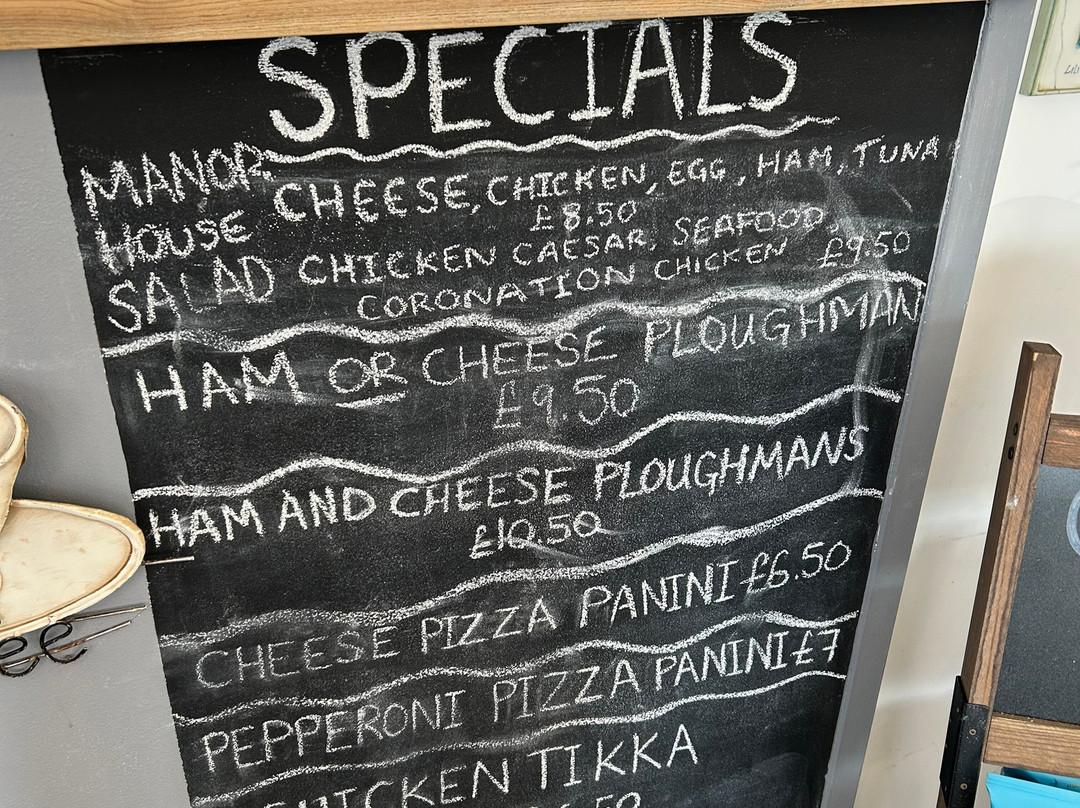 SPECIALS
MANOR HOUSE SALAD
CHEESE, CHICKEN, EGG, HAM, TUNA
£8.50
CHICKEN CAESAR, SEAFOOD,
CORONATION CHICKEN £9.50
HAM OR CHEESE PLOUGHMAN
£9.50
HAM AND CHEESE PLOUGHMANS
£10.50
CHEESE PIZZA PANINI £6.50
PEPPERONI PIZZA PANINI £7
CHICKEN TIKKA